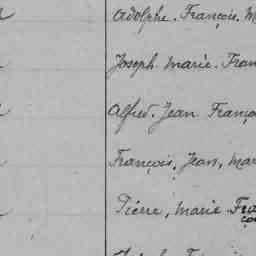 Adolphe. François. M
Joseph Marie. Fran
Alfred. Jean Franço
François, Jean, Mar
Pierre, Marie Fra
ço